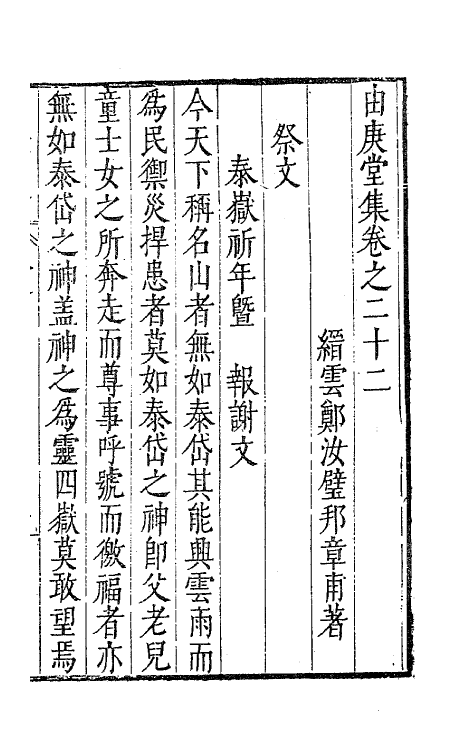 由庚堂集卷之二十二
縉雲鄭汝璧邦章甫著
祭文
泰嶽祈年曁　報謝文
今天下稱名山者無如泰岱其能興雲雨而
爲民禦災捍患者莫如泰岱之神卽父老兒
童士女之所奔走而尊事呼號而徼福者亦
無如泰岱之神盖神之爲靈四嶽莫敢望焉